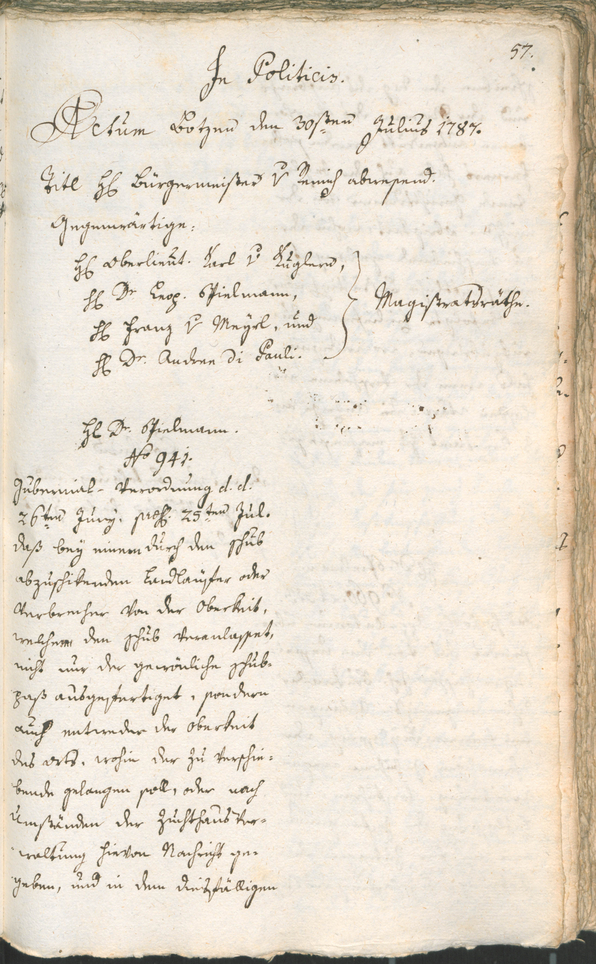 57.
In Politicis.
Actum Botzen den 30sten Julius 1787.
Titl H: Bürgermeister v Remich abwesend.
Gegenwärtige:
H: Oberlieut. Karl v Kuglern,
H: Dr Leop. Spielmann,
H: Franz v Meyrl, und
H: Dr. Andree Di Pauli.
Magistratsräthe.
H: Dr. Spielmann.
No 941.
Gubernial-Verordnung d. d.
26ten Juny, 25ten Jul.
daß bey einem durch den Schub
abzuschikenden Landläufer oder
Verbrecher von der Oberkeit,
welche den Schub veranlasset,
nicht nur der gewönliche Schub-
paß ausgefertiget, sondern
auch entweder der Oberkeit
des Orts, wohin der zu verschie-
bende gelangen soll, oder nach
Umständen der Zuchthaus Ver-
waltung hievon Nachricht ge-
geben, und in dem diesfälligen